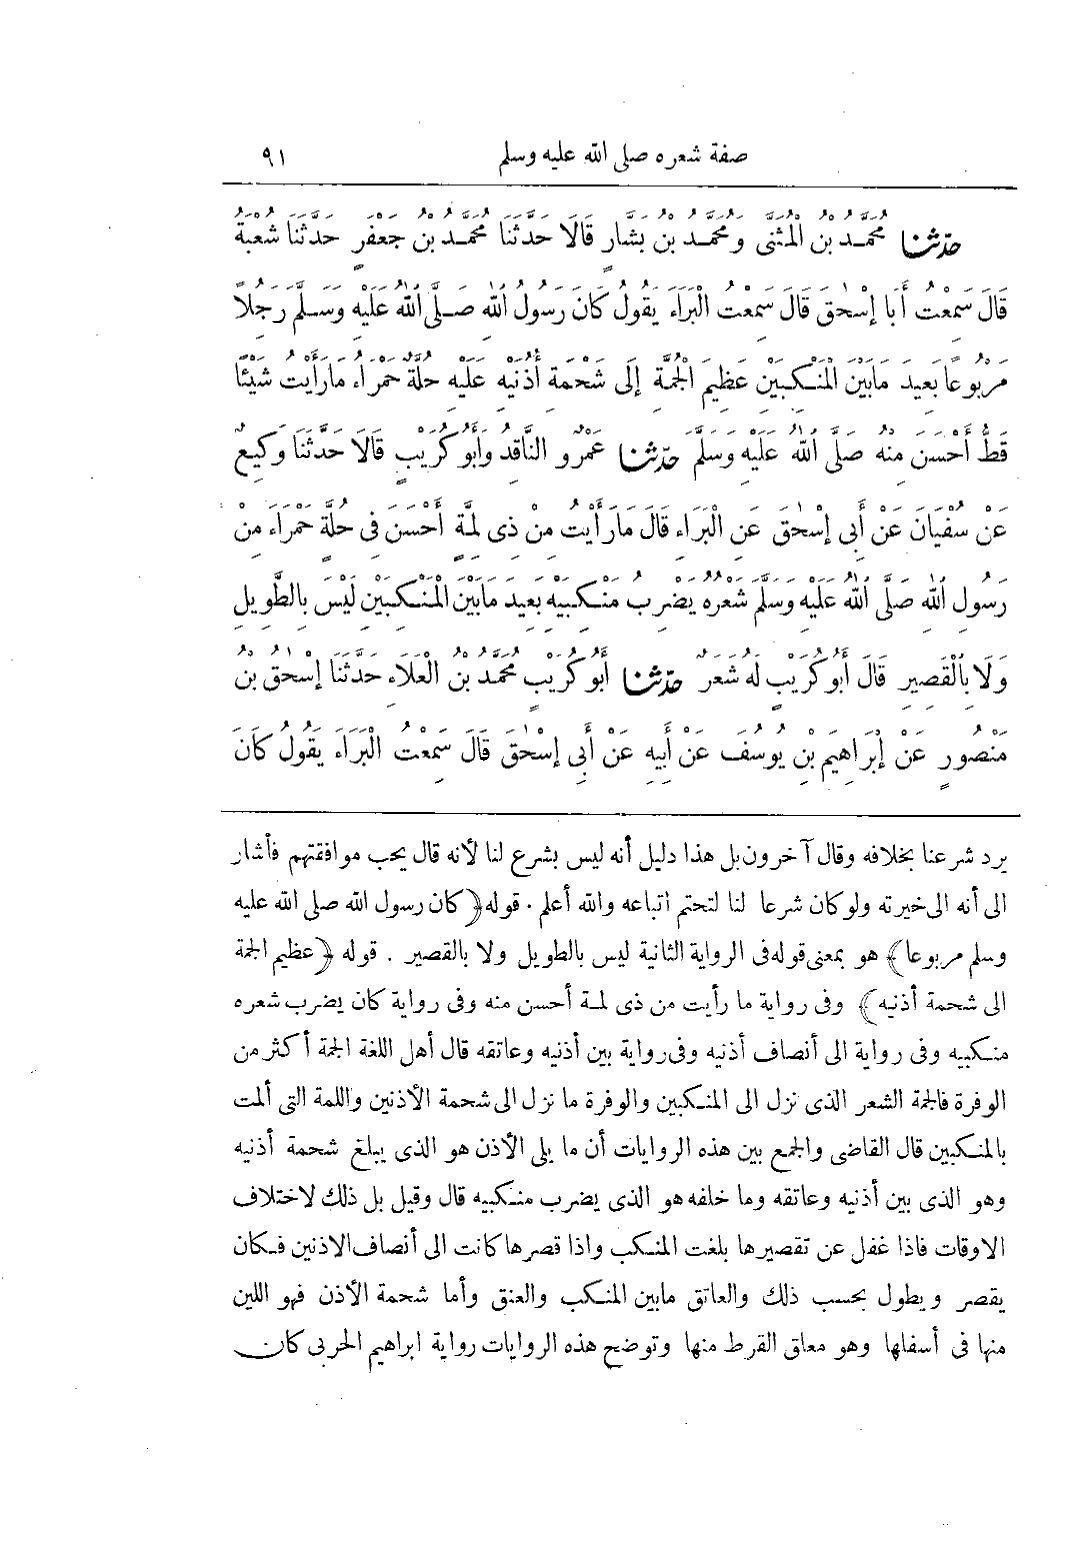 صفة شعره صلى الله عليه وسلم ٩١
حَدَّثَنَا مُحَمَّدُ بْنُ الْمُثَنَّى وَمُحَمَّدُ بْنُ بَشَّارٍ قَالَا حَدَّثَنَا مُحَمَّدُ بْنُ جَعْفَرٍ حَدَّثَنَا شُعْبَةُ
قَالَ سَمِعْتُ أَبَا إِسْحٰقَ قَالَ سَمِعْتُ الْبَرَاءَ يَقُولُ كَانَ رَسُولُ اللهِ صَلَّى اللهُ عَلَيْهِ وَسَلَّمَ رَجُلًا
مَرْبُوعًا بَعِيدَ مَابَيْنَ الْمَنْكِبَيْنِ عَظِيمَ الْجُمَّةِ إِلَى شَحْمَةِ أُذُنَيْهِ عَلَيْهِ حُلَّةٌ حَمْرَاءُ مَارَأَيْتُ شَيْئًا
قَطُّ أَحْسَنَ مِنْهُ صَلَّى اللهُ عَلَيْهِ وَسَلَّمَ حَدَّثَنَا عَمْرٌو النَّاقِدُ وَأَبُو كُرَيْبٍ قَالَا حَدَّثَنَا وَكِيعٌ
عَنْ سُفْيَانَ عَنْ أَبِى إِسْحٰقَ عَنِ الْبَرَاءِ قَالَ مَارَأَيْتُ مِنْ ذِى لِمَّةٍ أَحْسَنَ فِى حُلَّةٍ حَمْرَاءَ مِنْ
رَسُولِ اللهِ صَلَّى اللهُ عَلَيْهِ وَسَلَّمَ شَعْرُهُ يَضْرِبُ مَنْكِبَيْهِ بَعِيدَ مَابَيْنَ الْمَنْكِبَيْنِ لَيْسَ بِالطَّوِيلِ
وَلَا بِالْقَصِيرِ قَالَ أَبُو كُرَيْبٍ لَهُ شَعَرٌ حَدَّثَنَا أَبُو كُرَيْبٍ مُحَمَّدُ بْنُ الْعَلَاءِ حَدَّثَنَا إِسْحٰقُ بْنُ
مَنْصُورٍ عَنْ إِبْرَاهِيمَ بْنِ يُوسُفَ عَنْ أَبِيهِ عَنْ أَبِى إِسْحٰقَ قَالَ سَمِعْتُ الْبَرَاءَ يَقُولُ كَانَ
يرد شرعنا بخلافه وقال آخرون بل هذا دليل أنه ليس بشرع لنا لأنه قال يحب موافقتهم فأشار
الى أنه الى خيرته ولو كان شرعا لنا لتحتم اتباعه والله أعلم . قوله ﴿كان رسول الله صلى الله عليه
وسلم مربوعا﴾ هو بمعنى قوله فى الرواية الثانية ليس بالطويل ولا بالقصير . قوله ﴿عظيم الجمة
الى شحمة أذنيه﴾ وفى رواية ما رأيت من ذى لمة أحسن منه وفى رواية كان يضرب شعره
منكبيه وفى رواية الى أنصاف أذنيه وفى رواية بين أذنيه وعاتقه قال أهل اللغة الجمة أكثر من
الوفرة فالجمة الشعر الذى نزل الى المنكبين والوفرة ما نزل الى شحمة الأذنين واللمة التى ألمت
بالمنكبين قال القاضى والجمع بين هذه الروايات أن ما يلى الأذن هو الذى يبلغ شحمة أذنيه
وهو الذى بين أذنيه وعاتقه وما خلفه هو الذى يضرب منكبيه قال وقيل بل ذلك لاختلاف
الاوقات فاذا غفل عن تقصيرها بلغت المنكب واذا قصرها كانت الى أنصاف الاذنين فكان
يقصر ويطول بحسب ذلك والعاتق مابين المنكب والعنق وأما شحمة الأذن فهو اللين
منها فى أسفلها وهو معلق القرط منها وتوضح هذه الروايات رواية ابراهيم الحربى كان